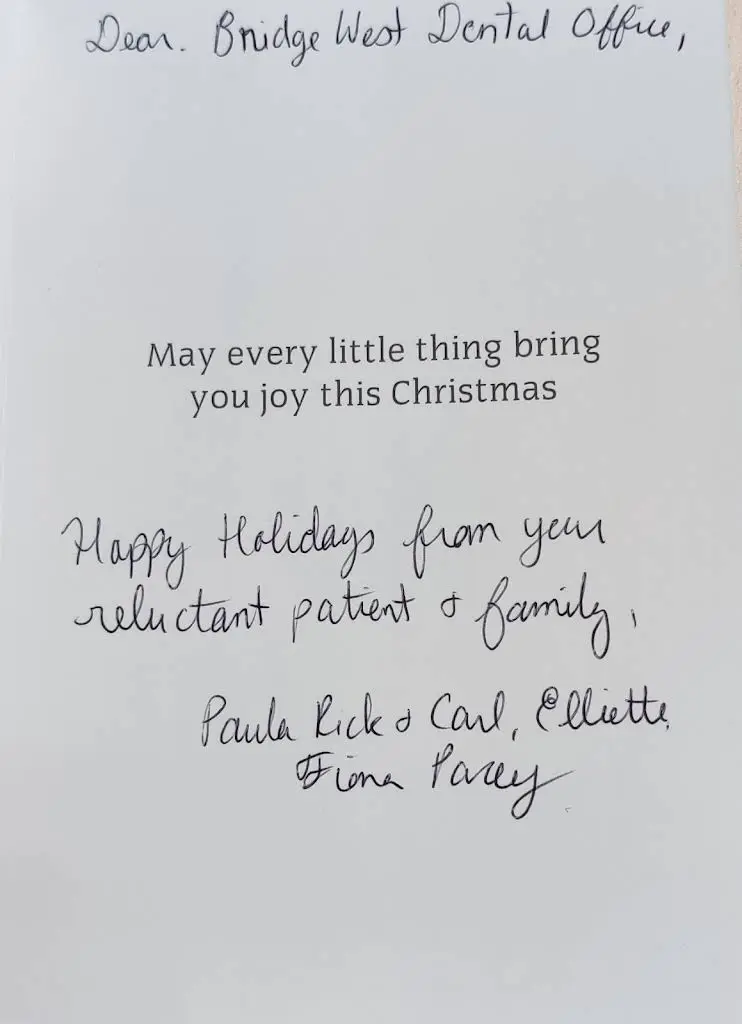 Dear. Bridge West Dental Office,
May every little thing bring
you joy this Christmas
Happy Holidays from your
reluctant patient & family,
Paula Rick & Carl, Elliette,
Fiona